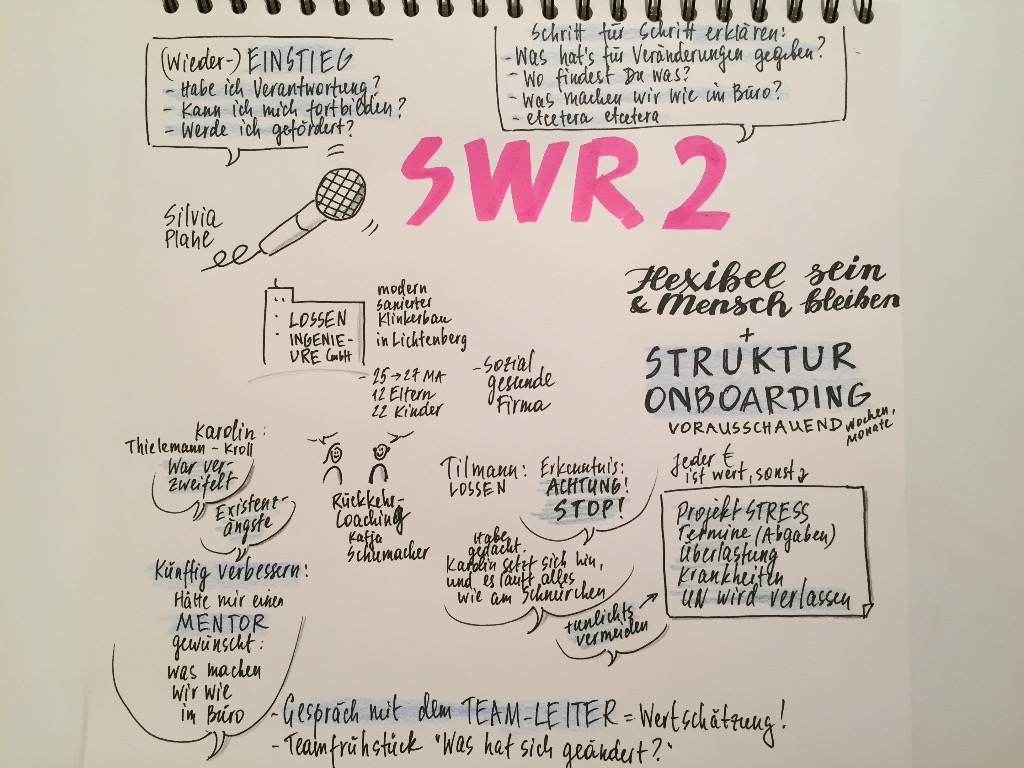 (Wieder-) EINSTIEG
- Habe ich Verantwortung?
- Kann ich mich fortbilden?
- Werde ich gefördert?
Schritt für Schritt erklären:
- Was hat's für Veränderungen gegeben?
- Wo findest Du was?
- Was machen wir wie im Büro?
- etcetera etcetera
SWR 2
Silvia
Plahe
LOSSEN
INGENIE-
URE GmbH
modern
sanierter
Klinkerbau
in Lichtenberg
- 25 → 27 MA
12 Eltern
22 Kinder
- Sozial
gesunde
Firma
Flexibel sein
& Mensch bleiben
+
STRUKTUR
ONBOARDING
VORAUSSCHAUEND
Wochen,
MONATE
Karolin:
Thielemann-Kroll
War ver-
zweifelt
Existenz-
ängste
Künftig verbessern:
Hätte mir einen
MENTOR
gewünscht:
was machen
wir wie
im Büro
Rückkehr-
Coaching
Katja
Schumacher
Tilmann:
LOSSEN
Erkenntnis:
ACHTUNG!
STOP!
Habe
gedacht:
Karolin setzt sich hin,
und es läuft alles
wie am Schnürchen
tunlichts
vermeiden
Jeder €
ist wert, sonst
Projekt STRESS
Termine (Abgaben)
Überlastung
Krankheiten
UN wird verlassen
- Gespräch mit dem TEAM-LEITER = Wertschätzung!
- Teamfrühstück "Was hat sich geändert?"